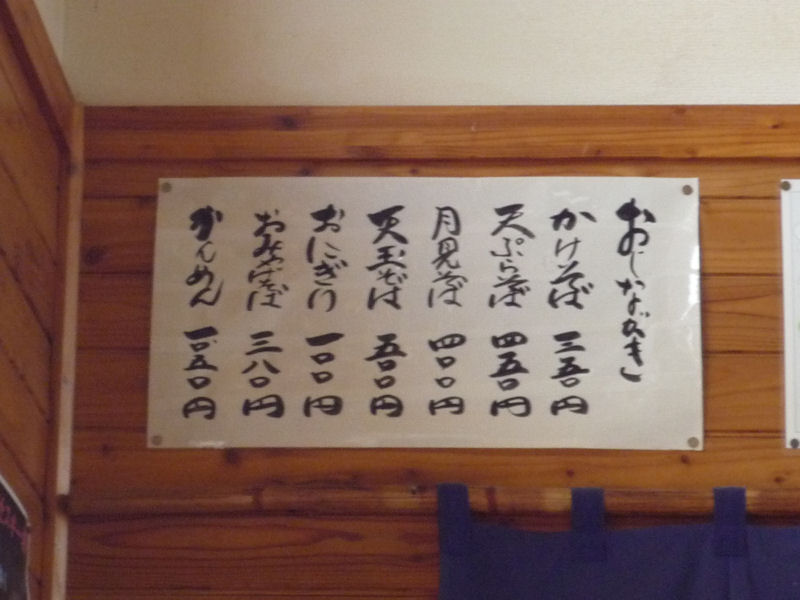 おしながき
かけそば 三五〇円
天ぷらそば 四五〇円
月見そば 四〇〇円
天玉そば 五〇〇円
おにぎり 一〇〇円
おみやげそば 三八〇円
かんめん 一〇五〇円